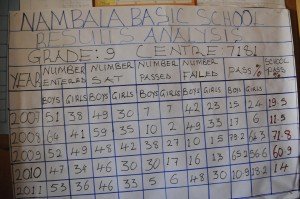 NAMBALA BASIC SCHOOL
RESULTS ANALYSIS
GRADE: 9 CENTRE: 7181
YEAR NUMBER ENTERED NUMBER SAT NUMBER PASSED NUMBER FAILED PASS % SCHOOL PASS %
BOYS GIRLS BOYS GIRLS BOYS GIRLS BOYS GIRLS BOYS GIRLS
2007 51 38 49 30 7 7 42 23 15 24 19.5
2008 64 41 59 35 10 2 49 33 17 6 11.5
2009 52 49 48 42 38 27 10 15 79.2 64.3 71.8
2010 47 38 46 30 30 17 16 13 65.2 56.6 60.9
2011 53 36 46 33 5 6 48 30 10.9 18.2 14